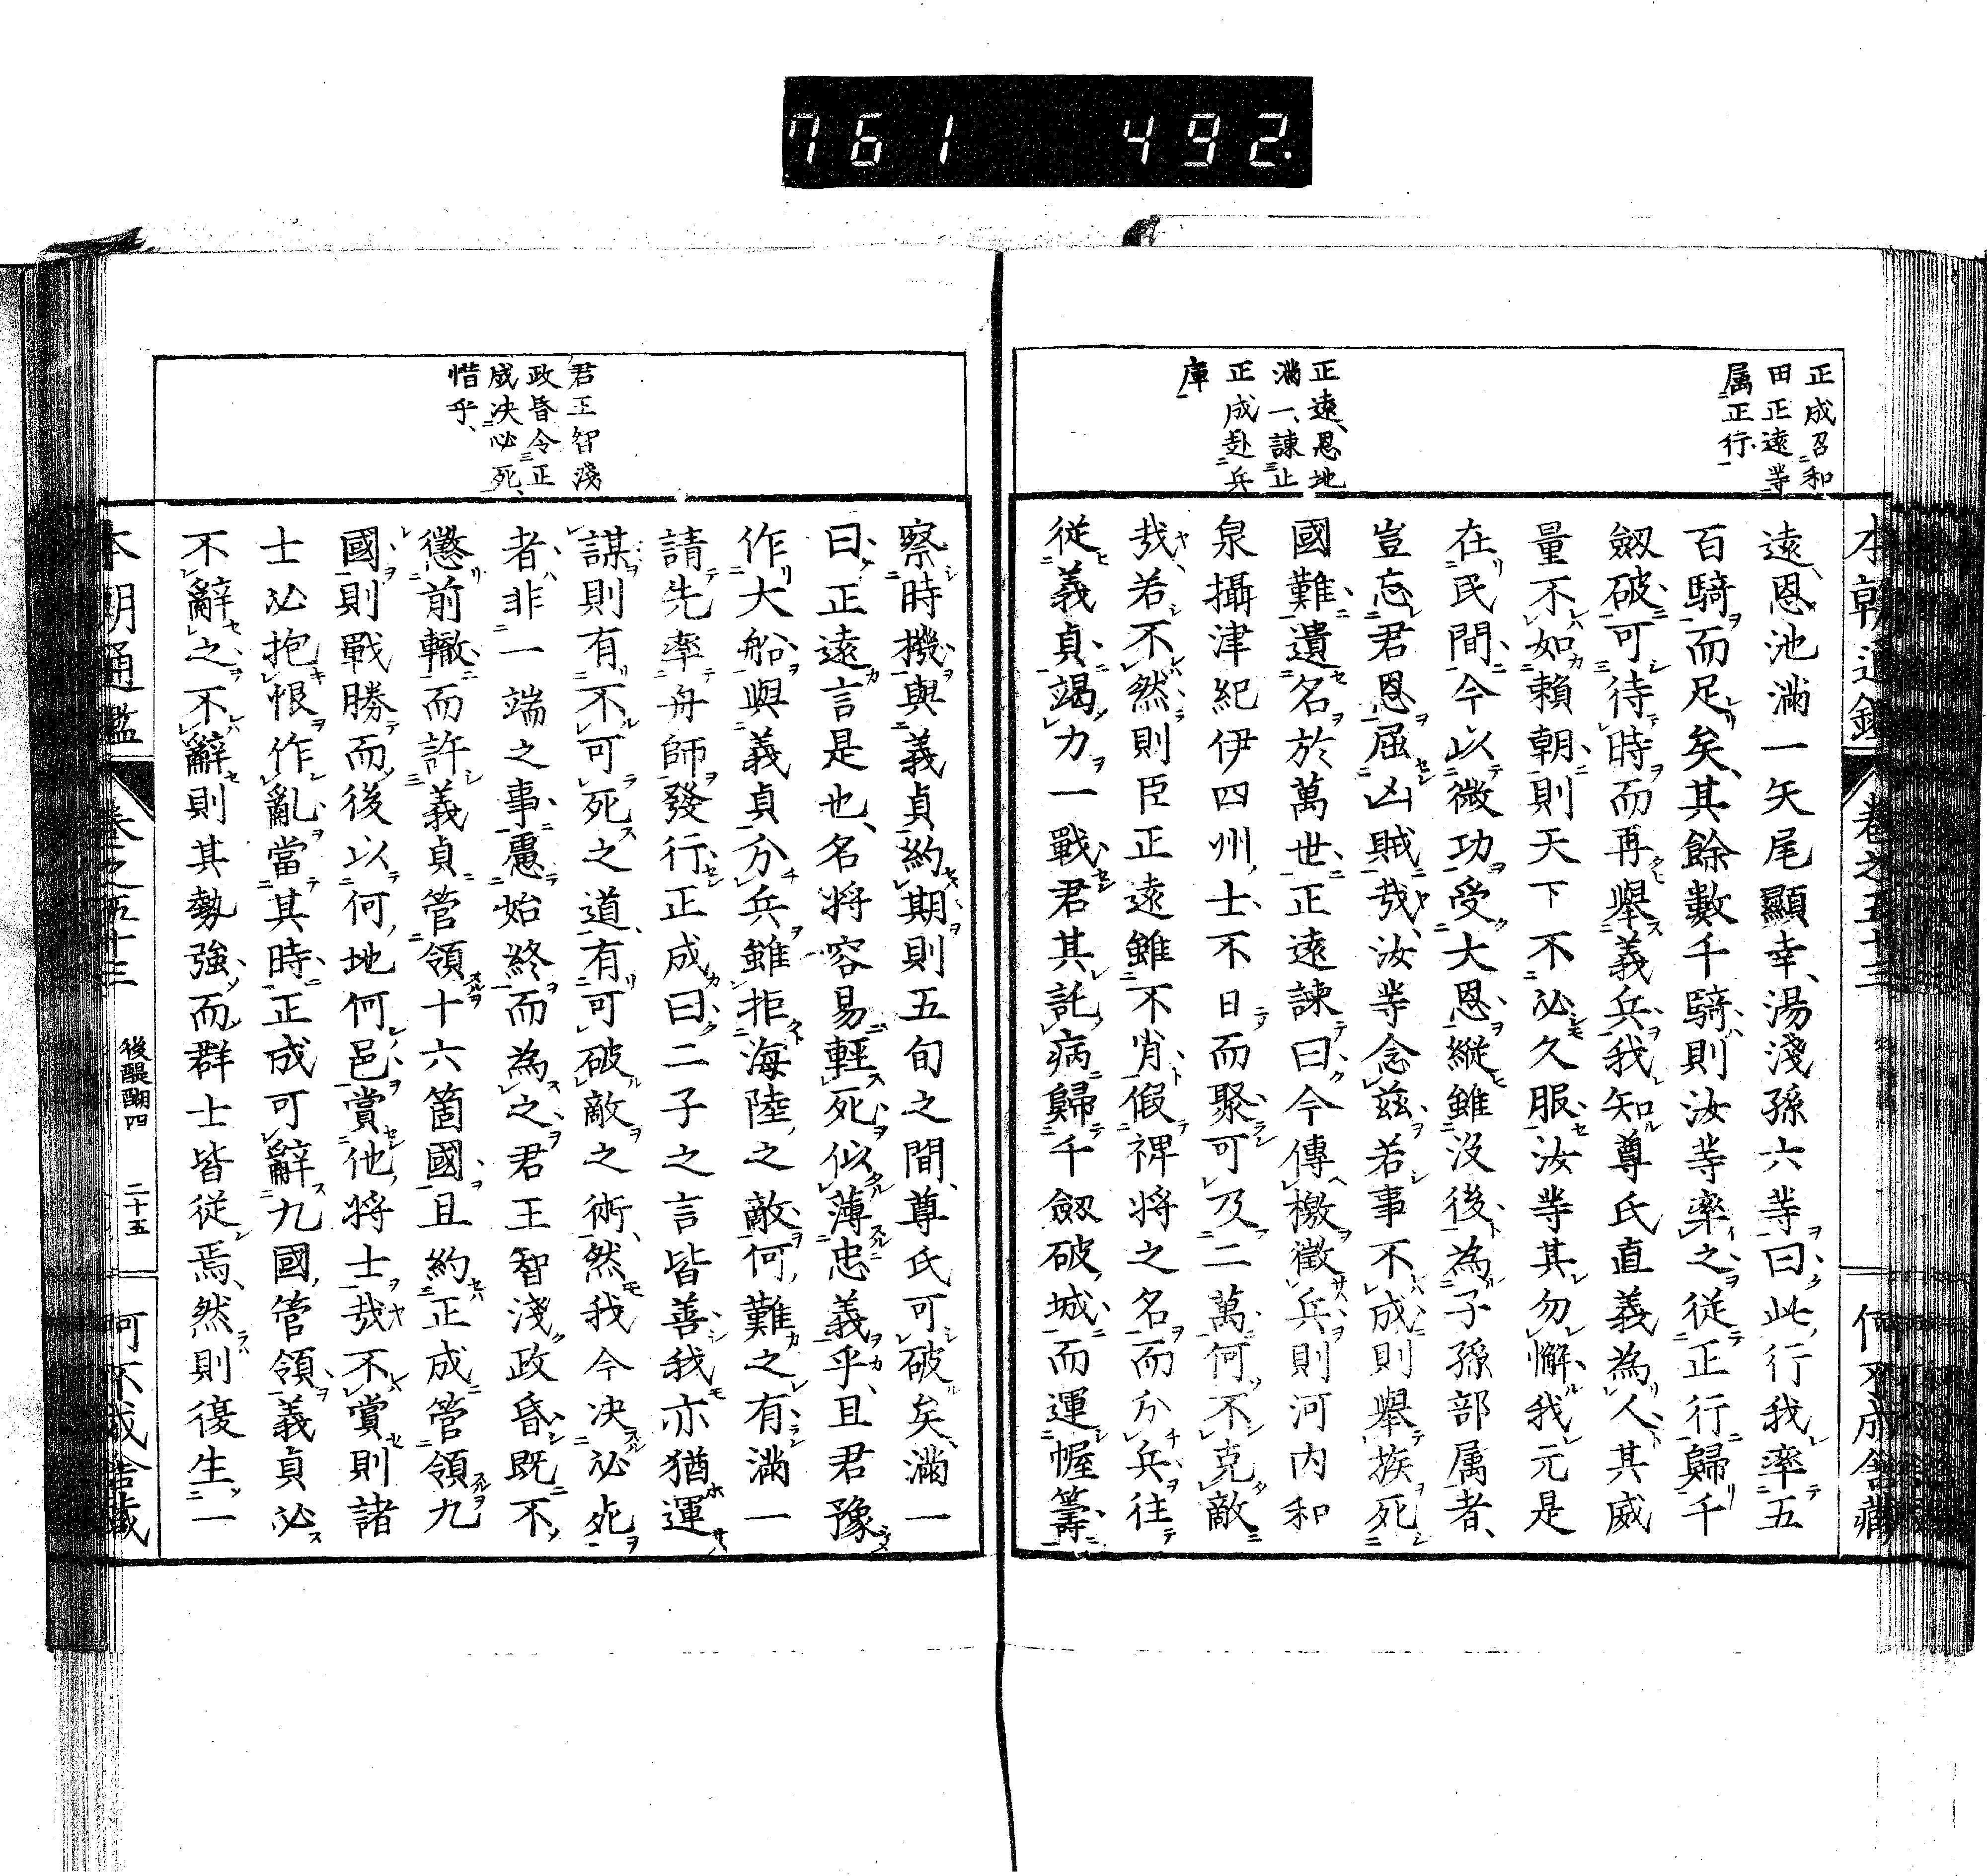 761 492.
本朝通鑑 卷之五十三 何不成舍藏
正成召和
田正遠等
属正行
正遠恩地
滿一諫止
正成赴兵
庫
遠恩池滿一矢尾顯幸湯淺孫六等曰此行我率五
百騎而足矣其餘數千騎則汝等率之從正行歸千
劔破可待時而再舉義兵我知尊氏直義為人其威
量不如賴朝則天下不必久服汝等其勿懈我元是
在民間今以微功受大恩縱雖沒後為子孫部属者
豈忘君恩屈凶賊哉汝等念茲若事不成則舉族死
國難遺名於萬世正遠諫曰今傳檄徵兵則河内和
泉攝津紀伊四州士不日而聚可及二萬何不克敵
哉若不然則臣正遠雖不肖假裨将之名而分兵往
從義貞竭力一戰君其託病歸千劔破城而運幄籌
君王智淺
政昏令正
成决必死
惜乎
察時機與義貞約期則五旬之間尊氏可破矣滿一
曰正遠言是也名将容易輕死似薄忠義乎且君豫
作大船與義貞分兵雖拒海陸之敵何難之有滿一
請先率舟師發行正成曰二子之言皆善我亦猶運
謀則有不可死之道有可破敵之術然我今决必死
者非一端之事慮始終而為之君王智淺政昏既不
懲前轍而許義貞管領十六箇國且約正成管領九
國則戰勝而後以何地何邑賞他将士哉不賞則諸
士必抱恨作亂當其時正成可辭九國管領義貞必
不辭之不辭則其勢強而群士皆從焉然則復生一
本朝通鑑 卷之五十三 後醍醐四 二十五 何不成舍藏